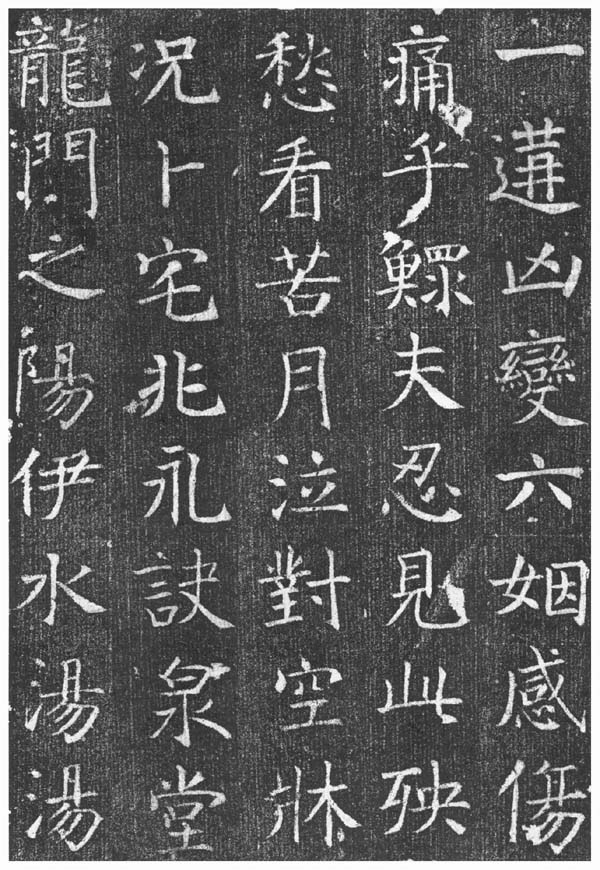 一遘凶變六姻感傷
痛乎鰥夫忍見此殃
愁看苦月泣對空牀
況卜宅兆永訣泉堂
龍門之陽伊水湯湯